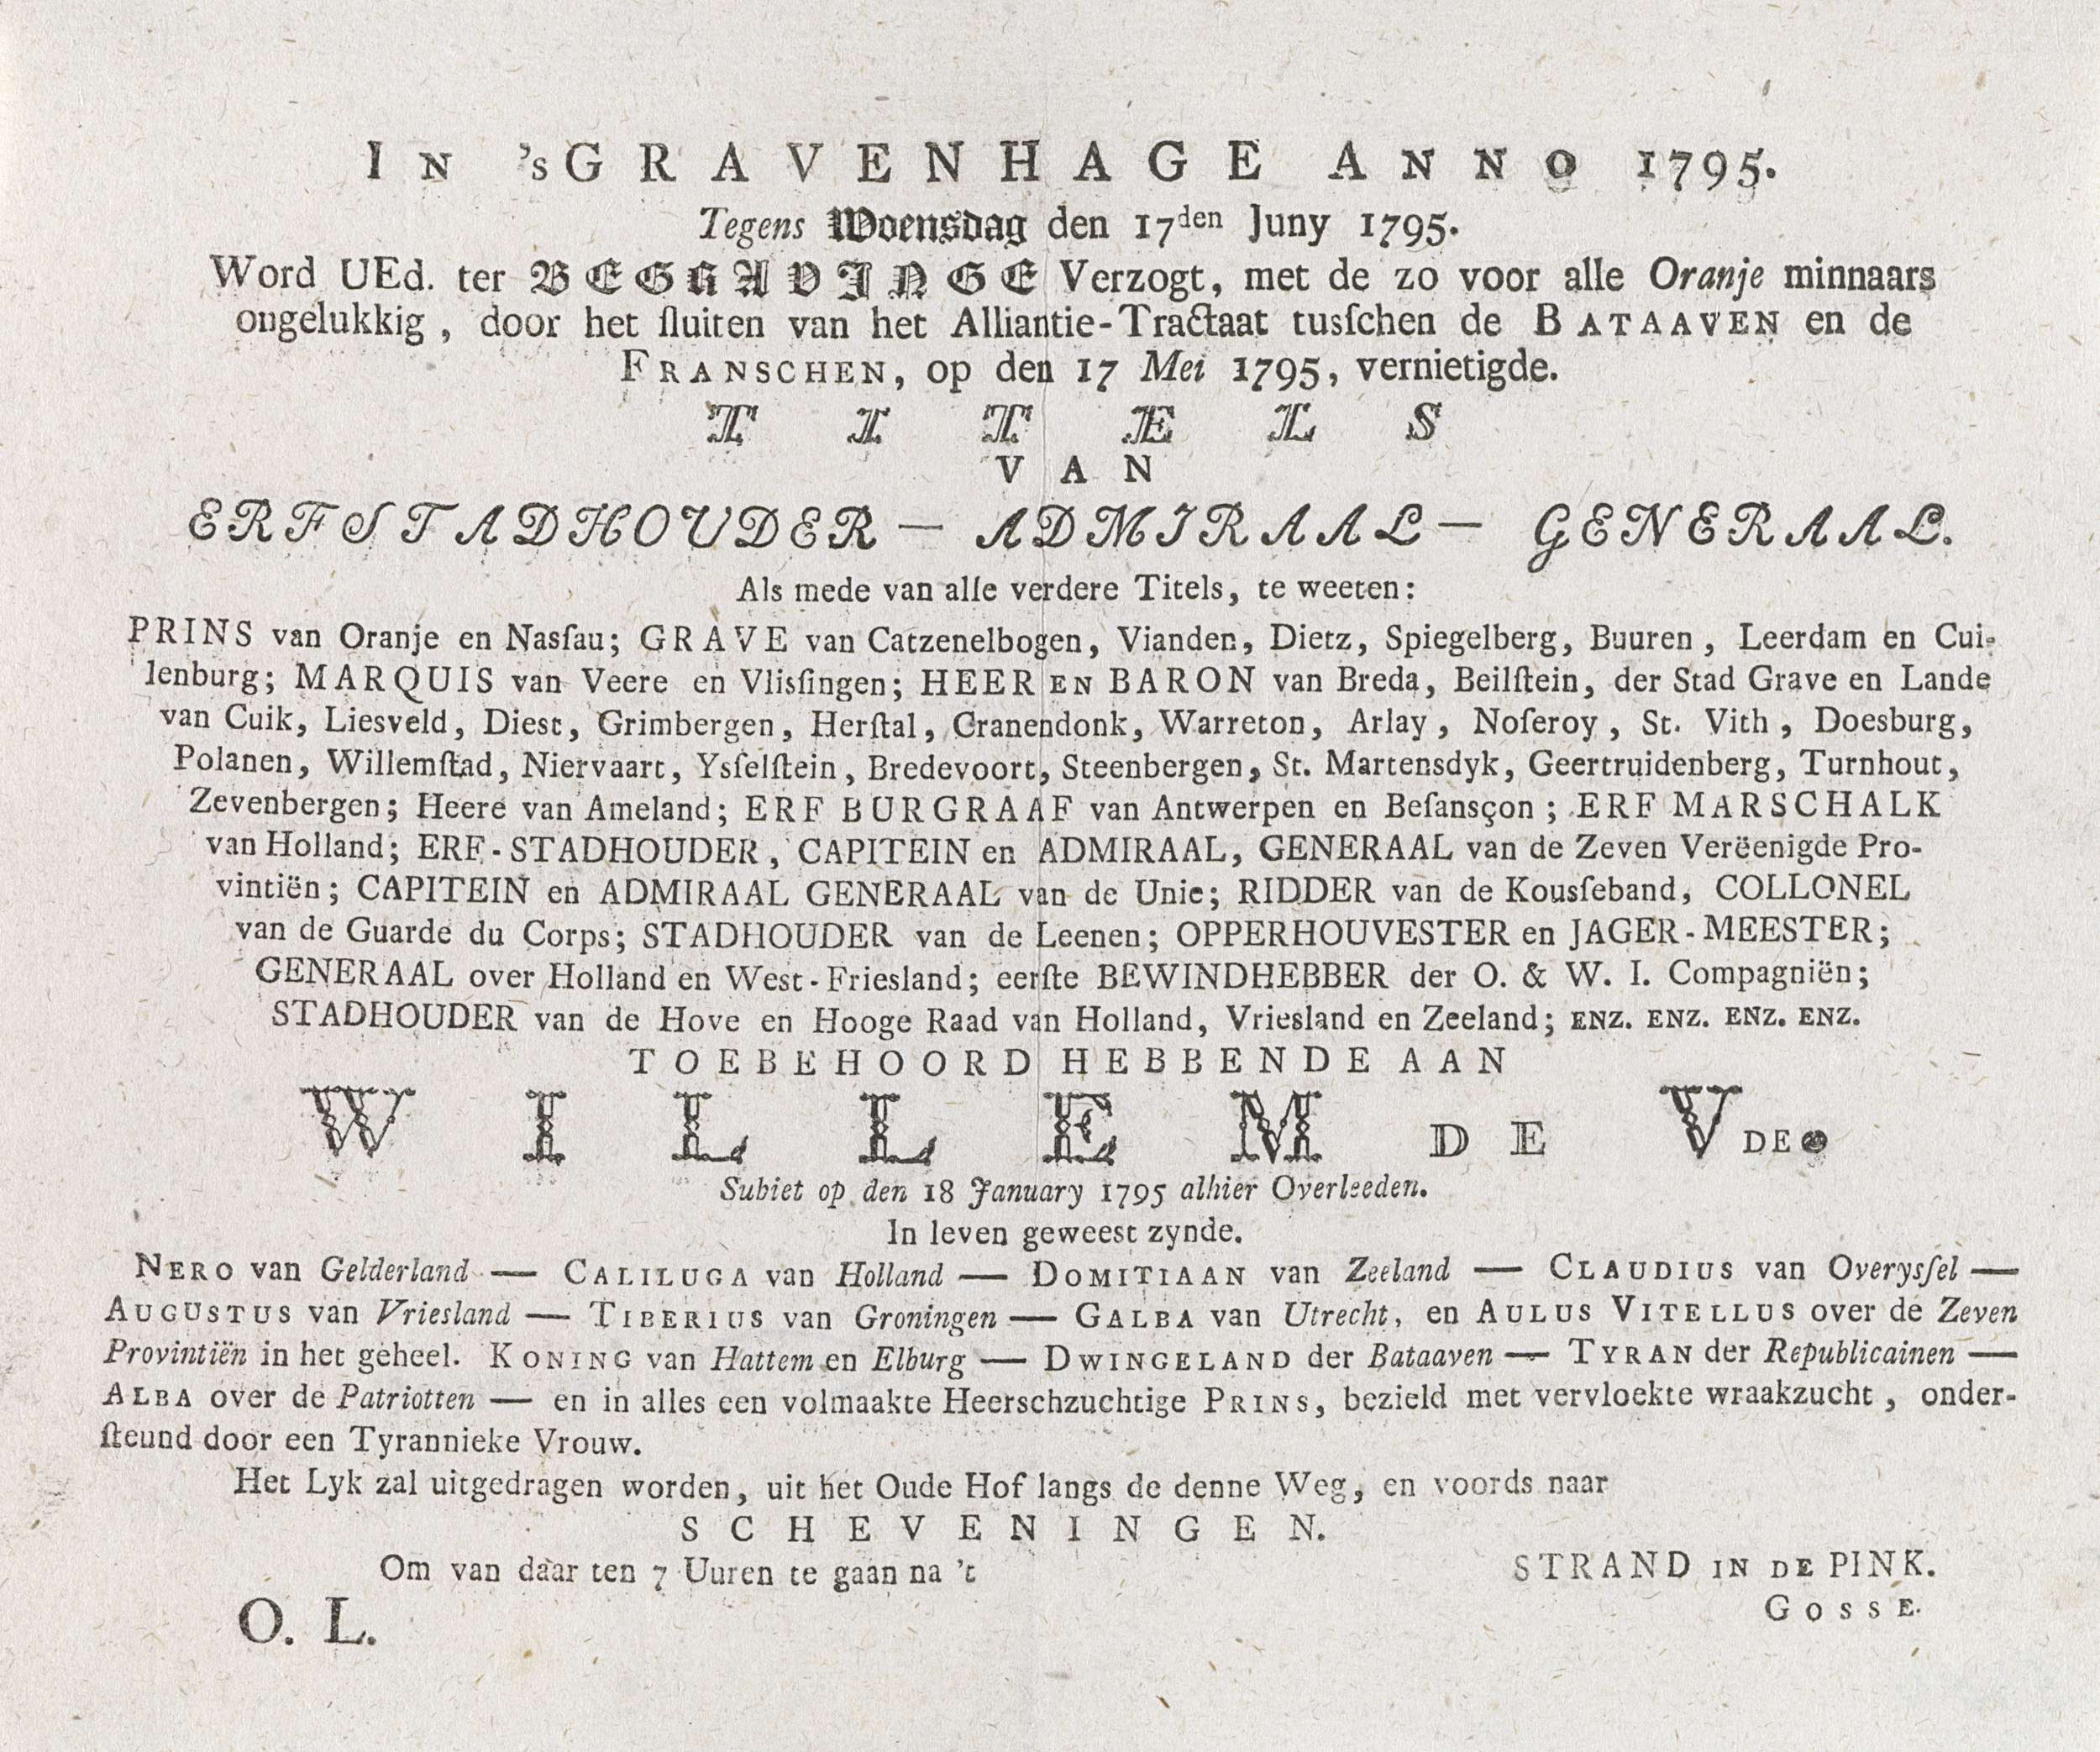 IN 'sGRAVENHAGE ANNO 1795.
Tegens Woensdag den 17den Juny 1795.
Word UEd. ter BEGRAVINGE Verzogt, met de zo voor alle Oranje minnaars
ongelukkig, door het ſluiten van het Alliantie-Tractaat tusſchen de BATAAVEN en de
FRANSCHEN, op den 17 Mei 1795, vernietigde.
TITELS
VAN
ERFSTADHOUDER — ADMIRAAL — GENERAAL.
Als mede van alle verdere Titels, te weeten:
PRINS van Oranje en Nasſau; GRAVE van Catzenelbogen, Vianden, Dietz, Spiegelberg, Buuren, Leerdam en Cui-
lenburg; MARQUIS van Veere en Vlisſingen; HEER EN BARON van Breda, Beilſtein, der Stad Grave en Lande
van Cuik, Liesveld, Diest, Grimbergen, Herſtal, Cranendonk, Warreton, Arlay, Noſeroy, St. Vith, Doesburg,
Polanen, Willemſtad, Niervaart, Ysſelſtein, Bredevoort, Steenbergen, St. Martensdyk, Geertruidenberg, Turnhout,
Zevenbergen; Heere van Ameland; ERF BURGRAAF van Antwerpen en Beſansçon; ERF MARSCHALK
van Holland; ERF-STADHOUDER, CAPITEIN en ADMIRAAL, GENERAAL van de Zeven Verëenigde Pro-
vintiën; CAPITEIN en ADMIRAAL GENERAAL van de Unie; RIDDER van de Kousſeband, COLLONEL
van de Guarde du Corps; STADHOUDER van de Leenen; OPPERHOUVESTER en JAGER-MEESTER;
GENERAAL over Holland en West-Friesland; eerſte BEWINDHEBBER der O. & W. I. Compagniën;
STADHOUDER van de Hove en Hooge Raad van Holland, Vriesland en Zeeland; ENZ. ENZ. ENZ. ENZ.
TOEBEHOORD HEBBENDE AAN
WILLEM DE VDE
Subiet op den 18 January 1795 alhier Overleeden.
In leven geweest zynde.
NERO van Gelderland — CALILUGA van Holland — DOMITIAAN van Zeeland — CLAUDIUS van Overysſel —
AUGUSTUS van Vriesland — TIBERIUS van Groningen — GALBA van Utrecht, en AULUS VITELLUS over de Zeven
Provintiën in het geheel. KONING van Hattem en Elburg — DWINGELAND der Bataaven — TYRAN der Republicainen —
ALBA over de Patriotten — en in alles een volmaakte Heerschzuchtige PRINS, bezield met vervloekte wraakzucht, onder-
ſteund door een Tyrannieke Vrouw.
Het Lyk zal uitgedragen worden, uit het Oude Hof langs de denne Weg, en voords naar
SCHEVENINGEN.
Om van daar ten 7 Uuren te gaan na 't STRAND IN DE PINK.
O. L. GOSSE.